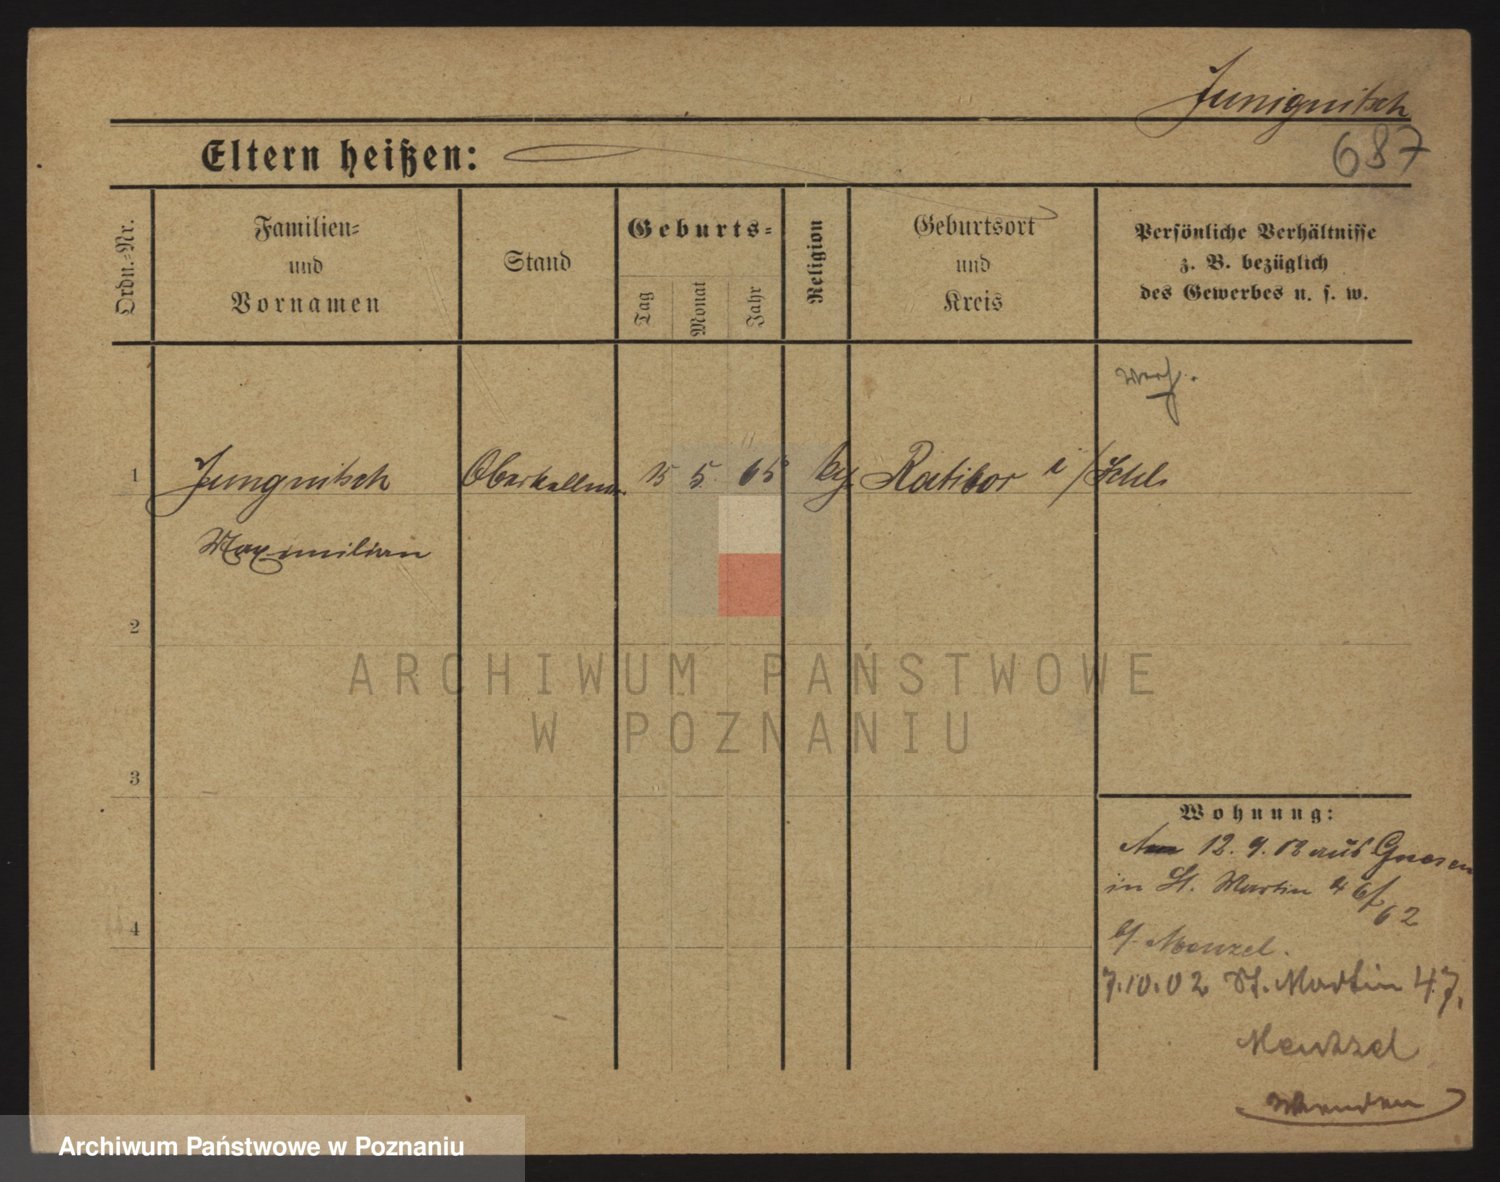 Jungnitsch
687
Eltern heißen:
Ordn.-Nr.
Familien-
und
Vornamen
Stand
Geburts-
Tag
Monat
Jahr
Religion
Geburtsort
und
Kreis
Persönliche Verhältnisse
z. B. bezüglich
des Gewerbes u. s. w.
1 Jungnitsch Oberkellner 15 5. 65 Ratibor i/Schls
Maximilian
2
3
4
ARCHIWUM PAŃSTWOWE
W POZNANIU
Wohnung:
12. 9. 02 aus Gnesen
in St. Martin 46/
62
b/ Menzel.
7.10.02 St. Martin 47,
Mentzel
Archiwum Państwowe w Poznaniu